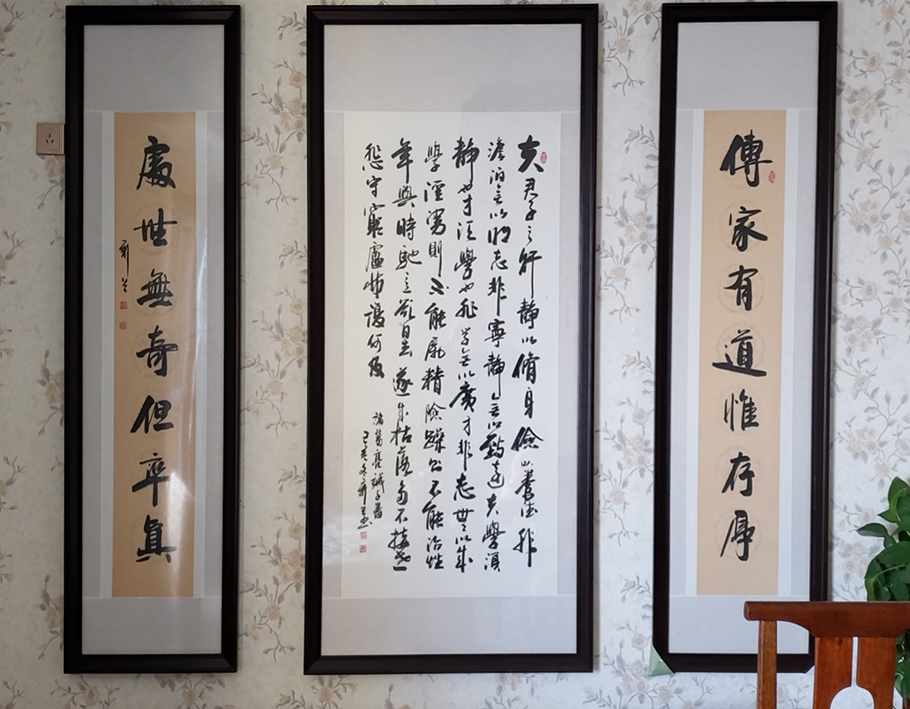 傳家有道惟存厚
夫君子之行靜以脩身儉以養德非
澹泊無以明志非寧靜無以致遠夫學須
靜也才須學也非學無以廣才非志無以成
學淫漫則不能勵精險躁則不能治性
年與時馳意與日去遂成枯落多不接世
悲守窮廬將復何及
諸葛亮誡子書
己亥冬
處世無奇但率真